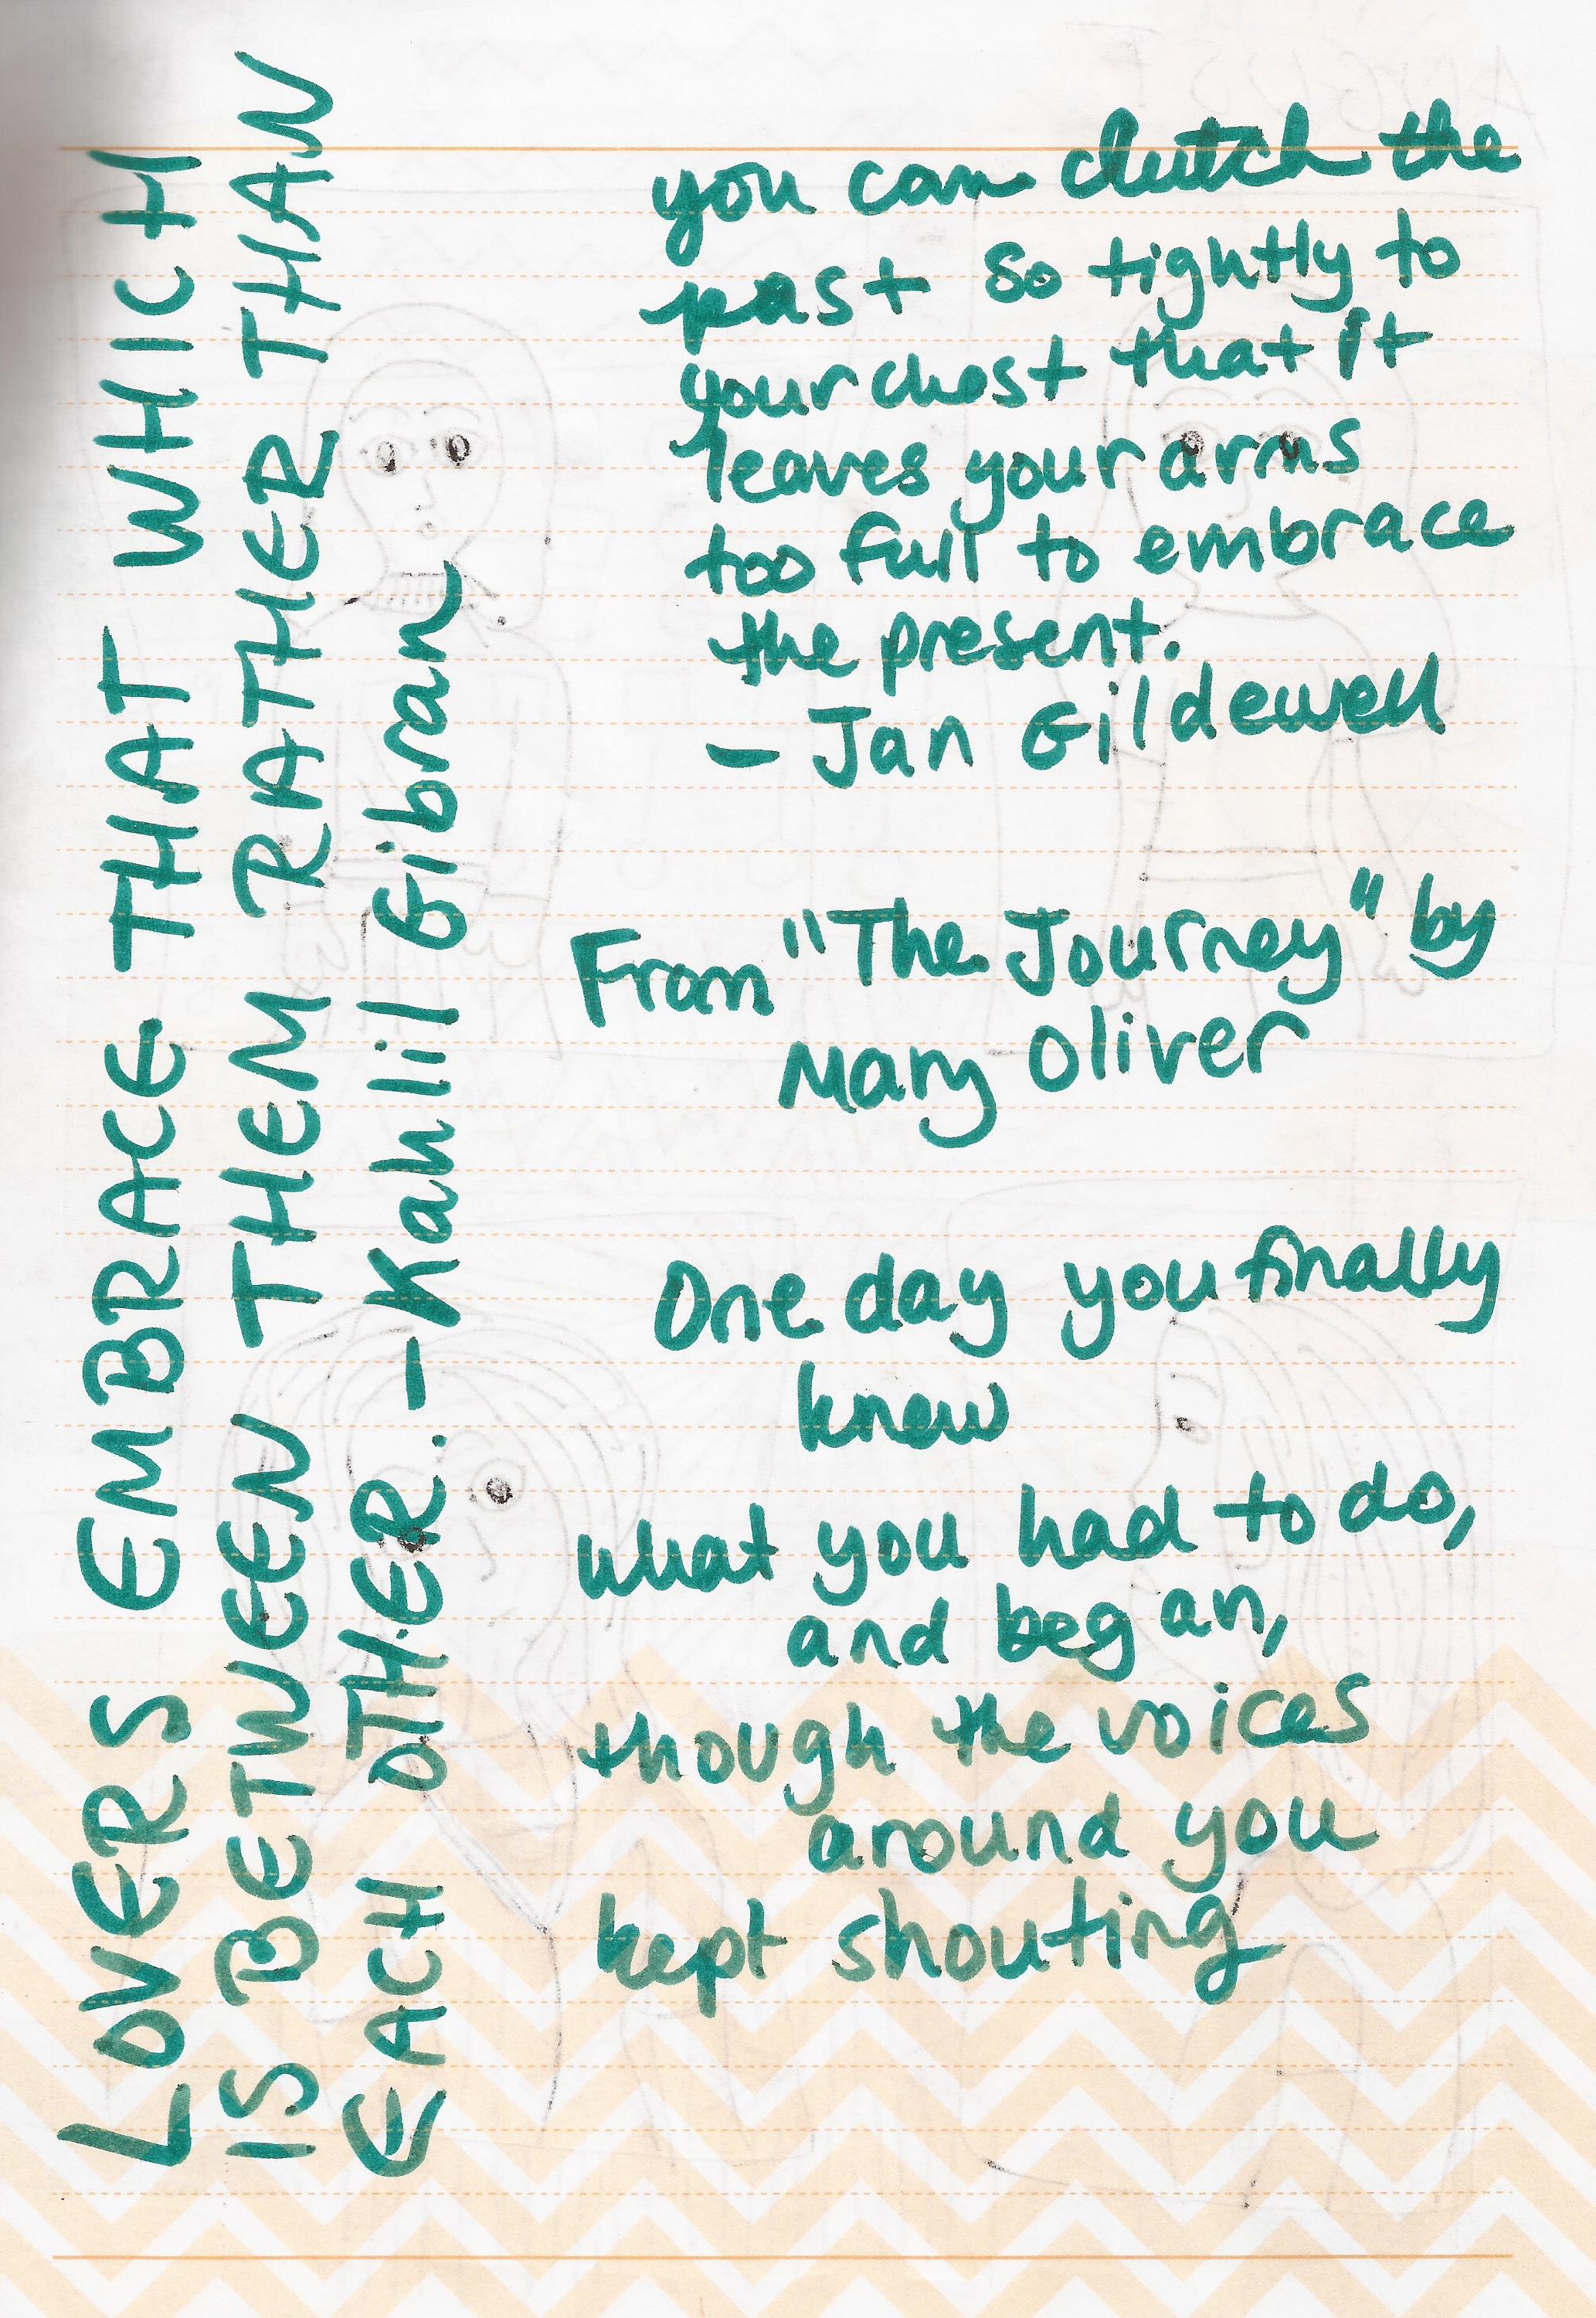 LOVERS EMBRACE THAT WHICH
IS BETWEEN THEM RATHER THAN
EACH OTHER. - Kahlil Gibran
you can clutch the
past so tightly to
your chest that it
leaves your arms
too full to embrace
the present.
- Jan Gildewell
From "The Journey" by
Mary Oliver
One day you finally
knew
what you had to do,
and began,
though the voices
around you
kept shouting